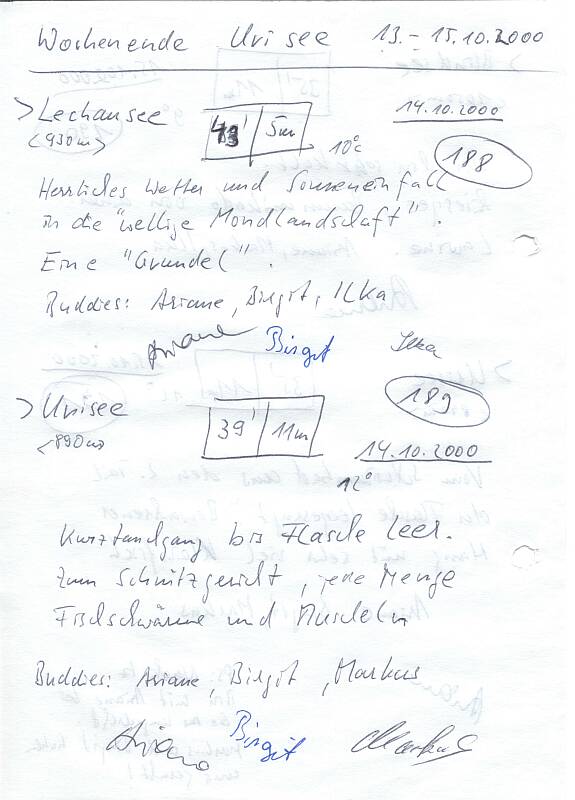 Wochenende Urisee 13. - 15.10.2000
> Lechausee 43' | 5m 14.10.2000
<930m> 10°C 188
Herrliches Wetter und Sonneneinfall
in die "wellige Mondlandschaft".
Eine "Grundel".
Buddies: Ariane, Birgit, Ilka
Ariane Birgit Ilka
> Urisee 39' | 11m 189
<890m> 14.10.2000
12°
Kurztauchgang bis Flasche leer.
Zum Schnitzgesicht, jede Menge
Fischschwärme und Muscheln
Buddies: Ariane, Birgit, Markus
Ariane Birgit Markus